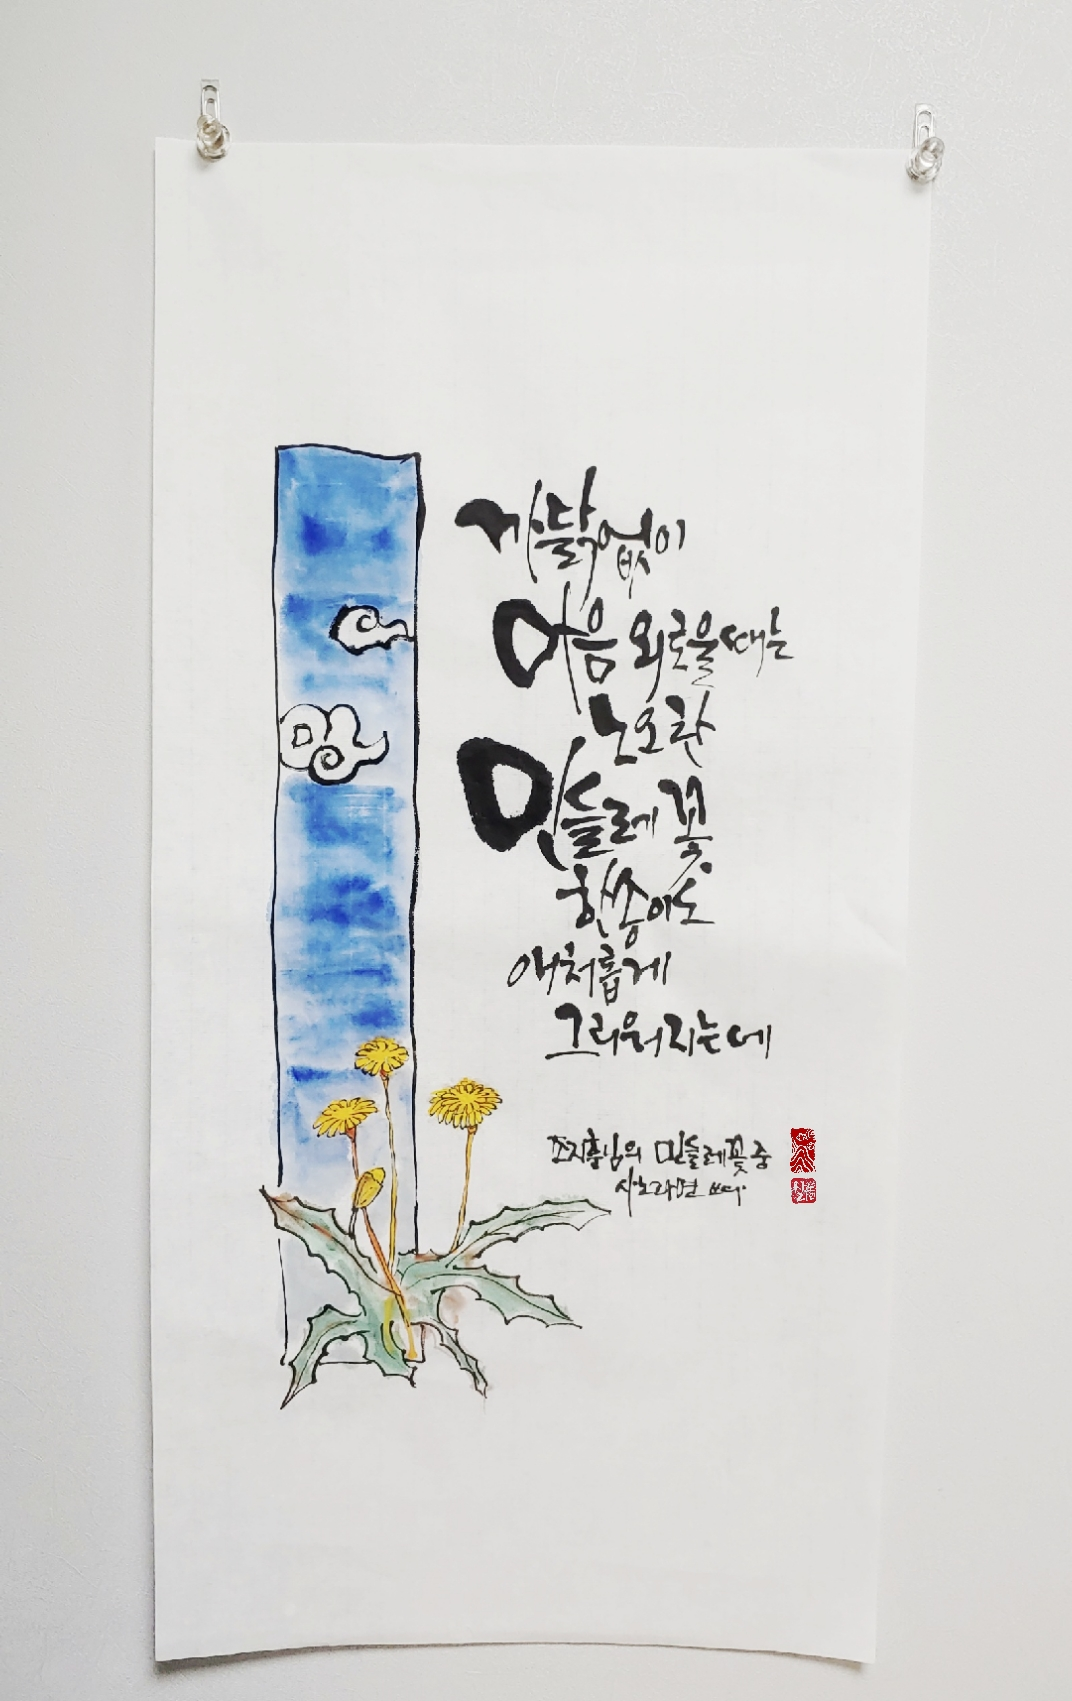 까닭없이
마음 외로울때는
노오란
민들레 꽃
한송이도
애처롭게
그리워지는데
조지훈님의 민들레꽃 중